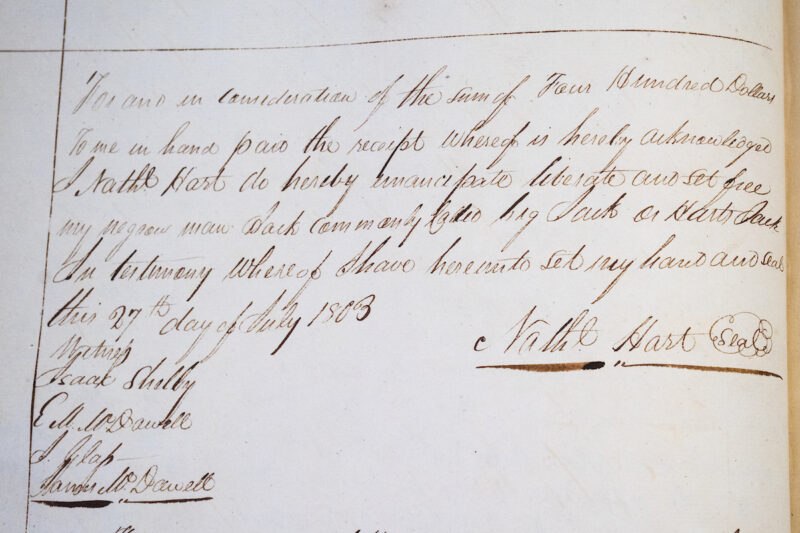 For and in consideration of the sum of Four Hundred Dollars
To me in hand paid the receipt whereof is hereby acknowledged
I Nathl. Hart do hereby emancipate liberate and set free
my negrow man Jack commonly called big Jack or Harts Jack
In testimony Whereof I have hereunto set my hand and seal
this 27th day of July 1803
Nathl. Hart Seal
Witness
Isaac Shelby
E M. McDowell
J.
James McDowell